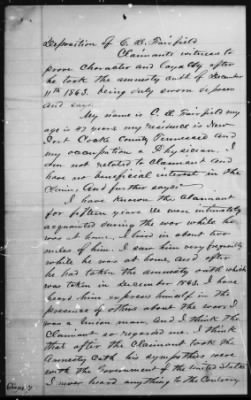 Deposition of C. D. Fairfield
Claimants witness to
prove character and Loyalty after
he took the amnesty oath of December
11th 1863. being duly sworn deposes
and says.
My name is C. D. Fairfield my
age is 47 years my residence is New-
port Cocke County Tennessee and
my occupation Physician. I
am not related to claimant and
have no beneficial interest in the
Claim, And further says:
I have known the Claimant
for fifteen years We were intimately
acquainted during the war while he
was at home, I lived in about two
miles of him. I saw him very frequently
while he was at home, and after
he had taken the amnesty oath which
was taken in December 1863. I have
heard him express himself in the
presence of others about the war. I
was a union man, and I think the
Claimant so regarded me. I think
that after the Claimant took the
Amnesty Oath his sympathies were
with the Government of the United States
I never heard anything to the Contrary.